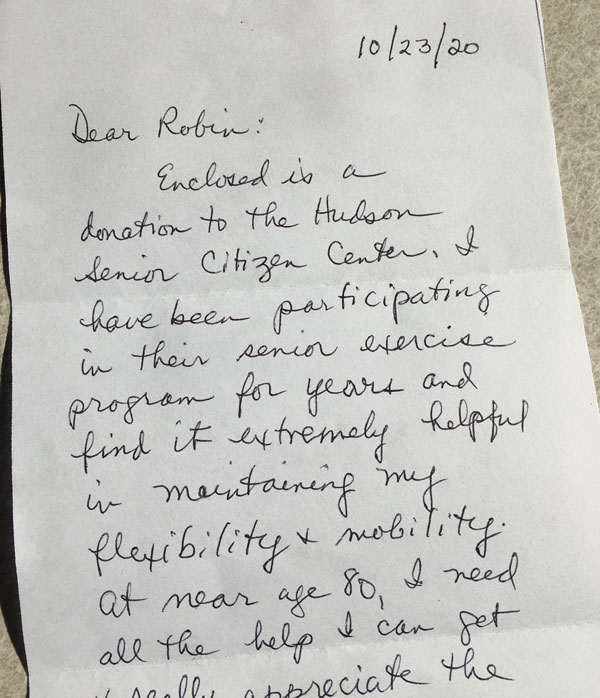 10/23/20
Dear Robin:
Enclosed is a
donation to the Hudson
Senior Citizen Center. I
have been participating
in their senior exercise
program for years and
find it extremely helpful
in maintaining my
flexibility & mobility.
At near age 80, I need
all the help I can get
& really appreciate the